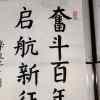 奋斗百年
启航新征